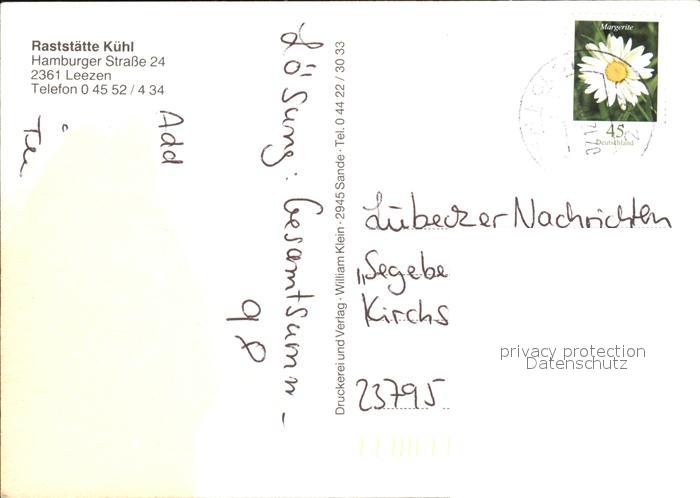 Raststätte Kühl
Hamburger Straße 24
2361 Leezen
Telefon 0 45 52 / 4 34
Add
Lösung: Gesamtsumm -
98
Druckerei und Verlag · William Klein · 2945 Sande · Tel. 0 44 22 / 30 33
Margerite
45
Deutschland
Lübecker Nachrichten
„Segebe
Kirchs
23795
privacy protection
Datenschutz